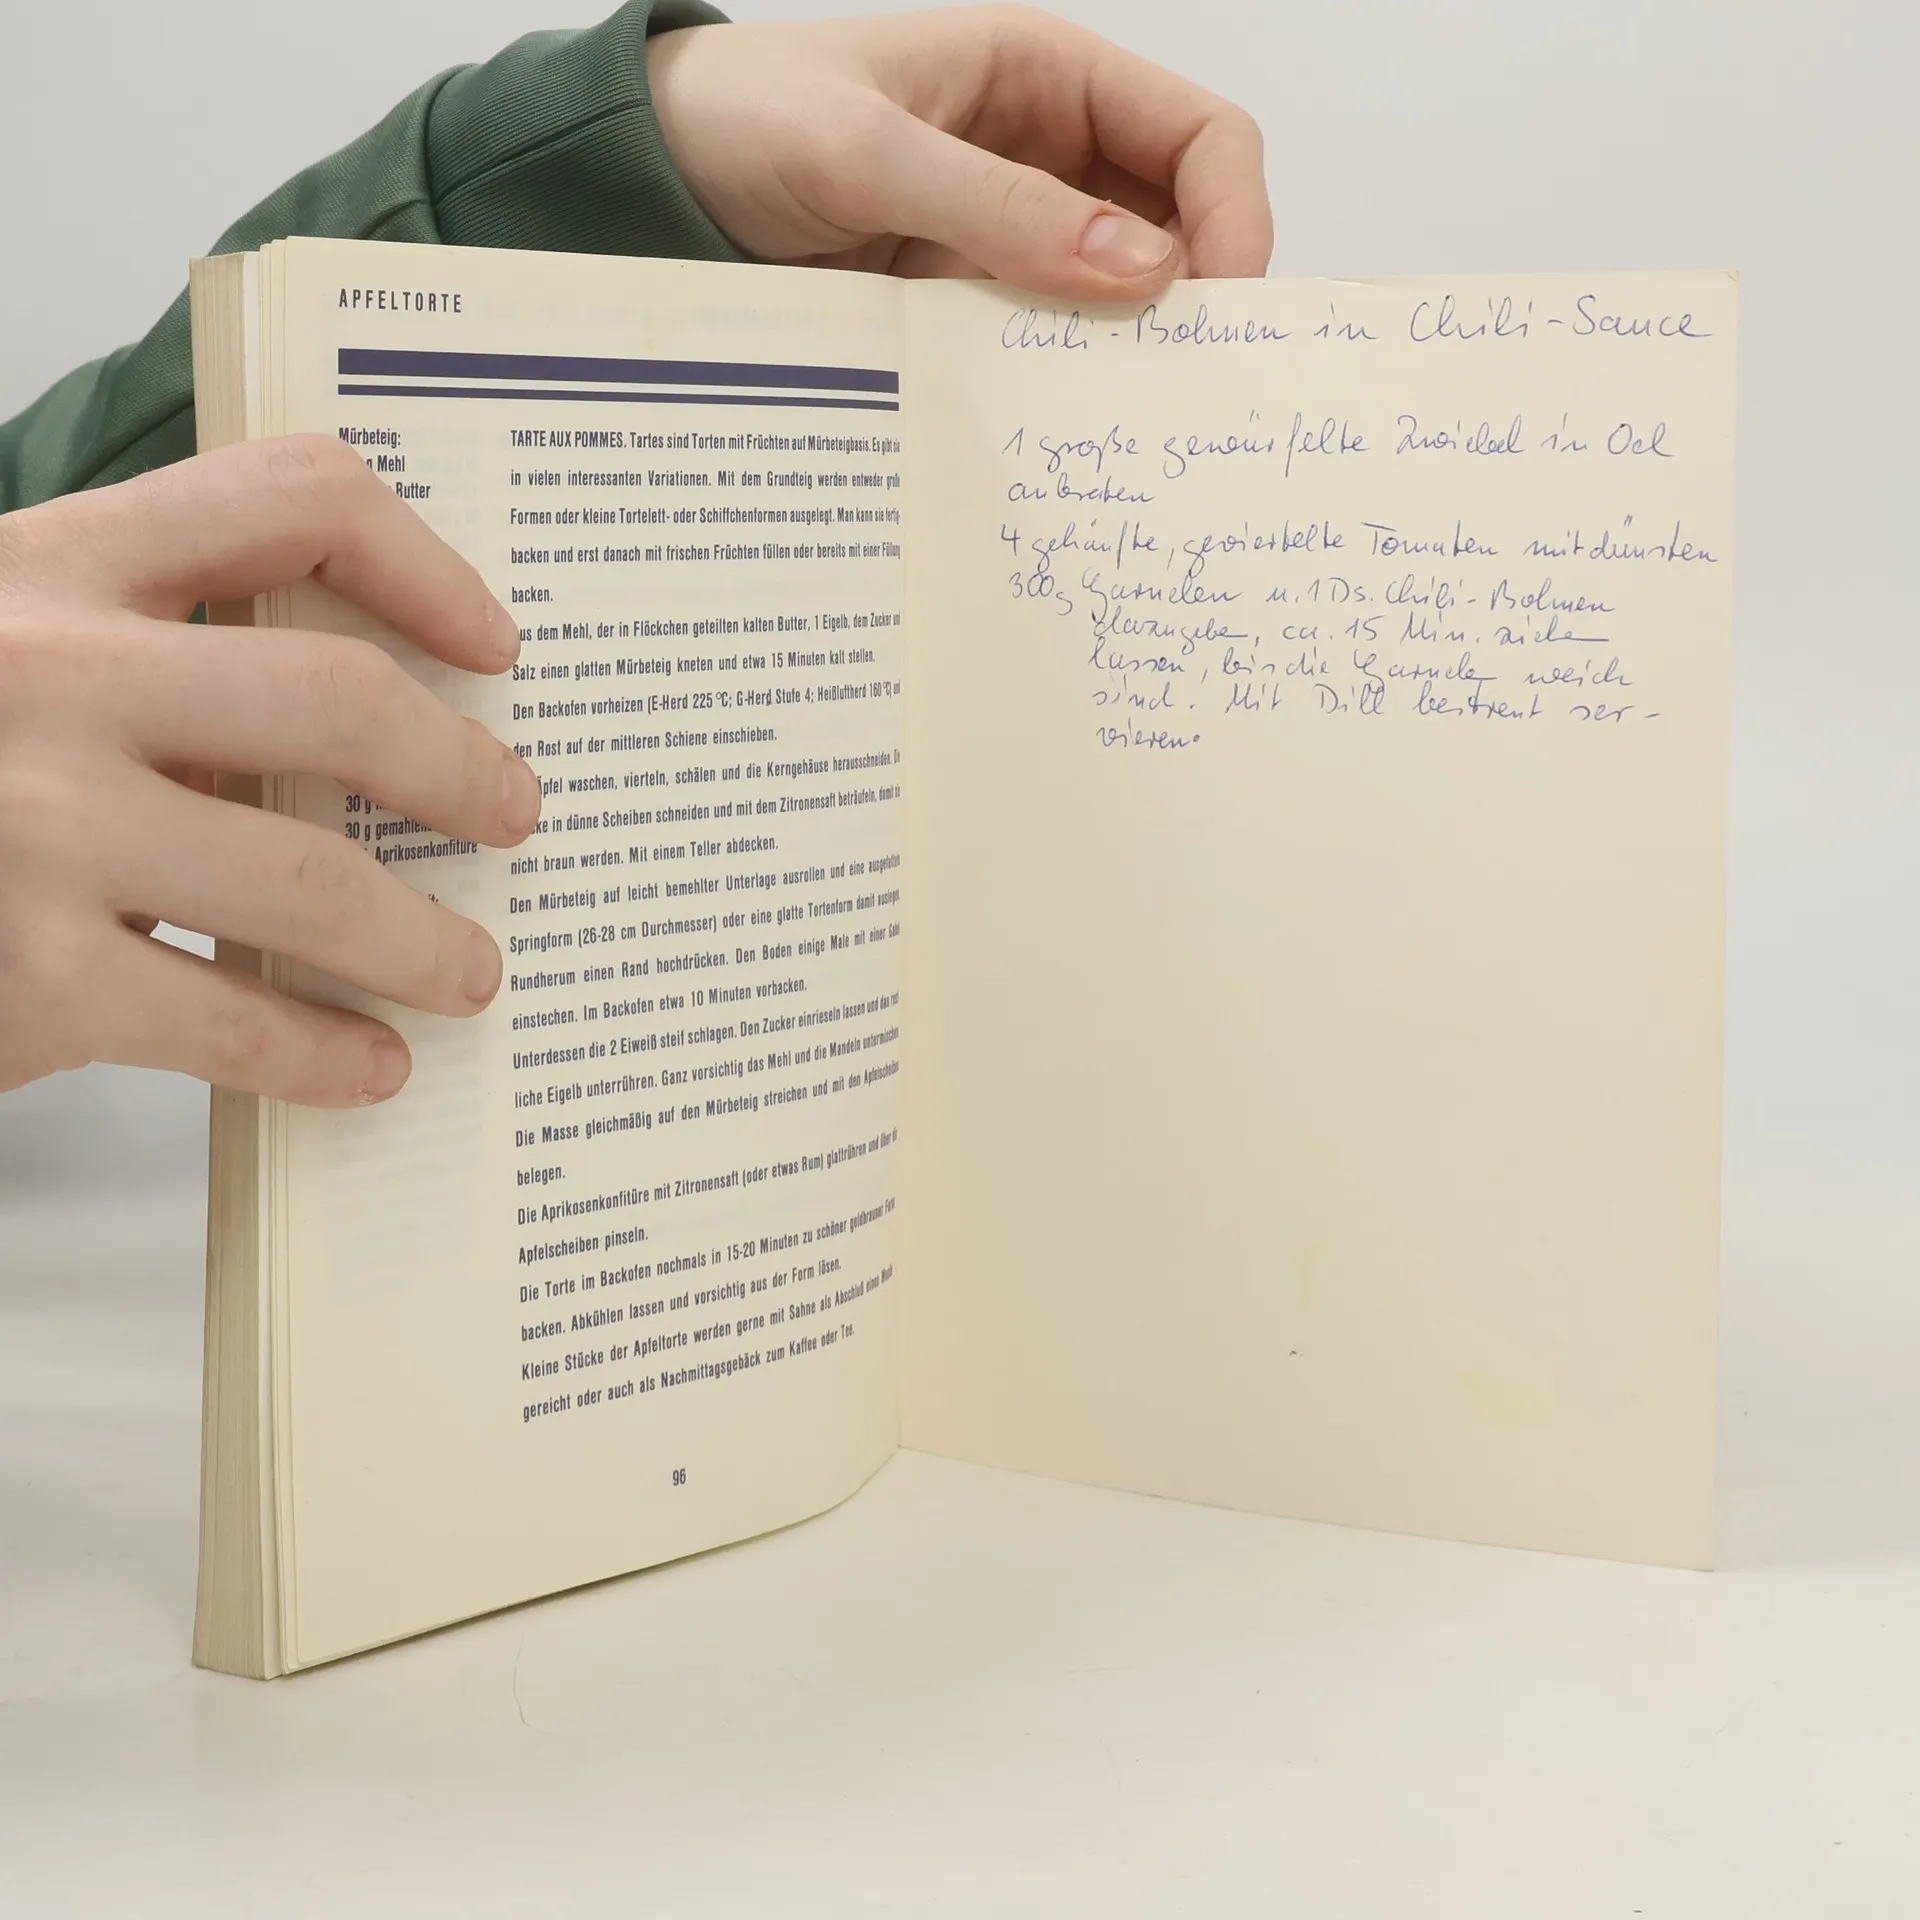 APFELTORTE
Mürbeteig:
g Mehl
Butter
30 g
30 g gemahlen
Aprikosenkonfitüre
TARTE AUX POMMES. Tartes sind Torten mit Früchten auf Mürbeteigbasis. Es gibt sie
in vielen interessanten Variationen. Mit dem Grundteig werden entweder große
Formen oder kleine Tortelett- oder Schiffchenformen ausgelegt. Man kann sie fertig-
backen und erst danach mit frischen Früchten füllen oder bereits mit einer Füllung
backen.
us dem Mehl, der in Flöckchen geteilten kalten Butter, 1 Eigelb, dem Zucker und
Salz einen glatten Mürbeteig kneten und etwa 15 Minuten kalt stellen.
Den Backofen vorheizen (E-Herd 225 °C; G-Herd Stufe 4; Heißluftherd 160 °C) und
den Rost auf der mittleren Schiene einschieben.
Äpfel waschen, vierteln, schälen und die Kerngehäuse herausschneiden. Di
ke in dünne Scheiben schneiden und mit dem Zitronensaft beträufeln, damit sie
nicht braun werden. Mit einem Teller abdecken.
Den Mürbeteig auf leicht bemehlter Unterlage ausrollen und eine ausgefettete
Springform (26-28 cm Durchmesser) oder eine glatte Tortenform damit auslegen.
Rundherum einen Rand hochdrücken. Den Boden einige Male mit einer Gabel
einstechen. Im Backofen etwa 10 Minuten vorbacken.
Unterdessen die 2 Eiweiß steif schlagen. Den Zucker einrieseln lassen und das rest-
liche Eigelb unterrühren. Ganz vorsichtig das Mehl und die Mandeln untermischen
Die Masse gleichmäßig auf den Mürbeteig streichen und mit den Apfelscheiben
belegen.
Die Aprikosenkonfitüre mit Zitronensaft (oder etwas Rum) glattrühren und über die
Apfelscheiben pinseln.
Die Torte im Backofen nochmals in 15-20 Minuten zu schöner goldbrauner Farbe
backen. Abkühlen lassen und vorsichtig aus der Form lösen.
Kleine Stücke der Apfeltorte werden gerne mit Sahne als Abschluß eines Menüs
gereicht oder auch als Nachmittagsgebäck zum Kaffee oder Tee.
96
Chili-Bohnen in Chili-Sauce
1 große gewürfelte Zwiebel in Oel
anbraten
4 gehäufte, geviertelte Tomaten mitdünsten
300g Garnelen u. 1 Ds. Chili-Bohnen
dazugeben, ca. 15 Min. ziehen
lassen, bis die Garnelen weich
sind. Mit Dill bestreut ser-
vieren.